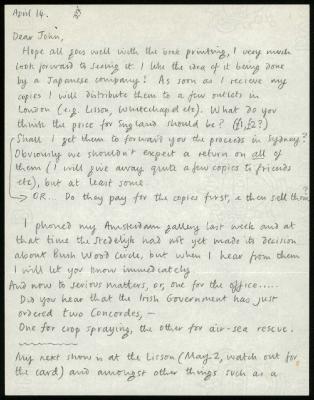 April 14.
Dear John,
Hope all goes well with the book printing, I very much
look forward to seeing it. I like the idea of it being done
by a Japanese company! As soon as I recieve my
copies I will distribute them to a few outlets in
London (e.g. Lisson, Whitechapel etc). What do you
think the price for England should be? (£1, £2?)
Shall I get them to forward you the proceeds in Sydney?
Obviously we shouldn't expect a return on all of
them (I will give away quite a few copies to friends
etc), but at least some.
OR... Do they pay for the copies first, & then sell them?
I phoned my Amsterdam gallery last week and at
that time the Stedelijk had not yet made its decision
about Bush Wood Circle, but when I hear from them
I will let you know immediately.
And now to serious matters, or, one for the office.....
Did you hear that the Irish Government has just
ordered two Concordes, —
One for crop spraying, the other for air-sea rescue.
My next show is at the Lisson (May 2, watch out for
the card) and amongst other things such as a